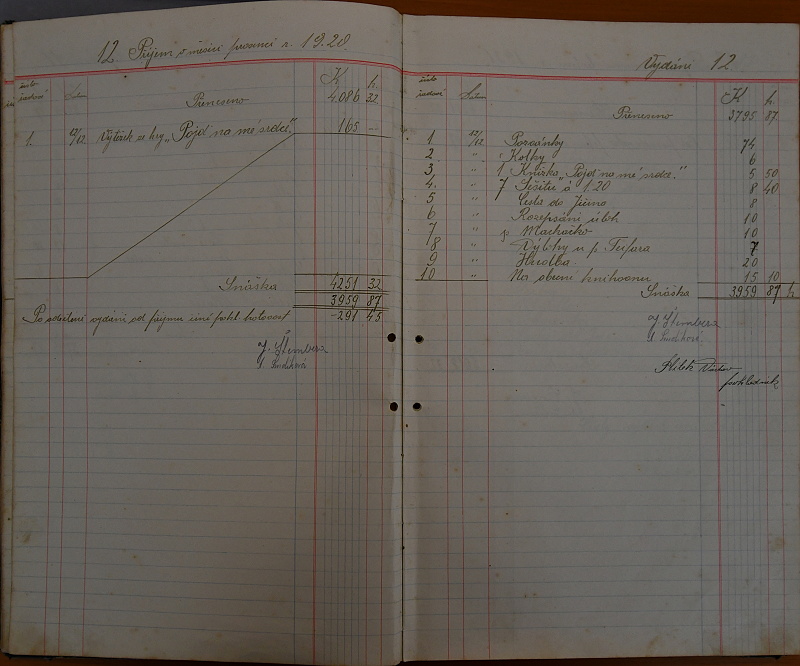 12 Příjem v měsíci prosinci r. 1920.
číslo řadové
K h
Přeneseno 4.086 32
1. 12/12 Výtěžek ze hry „Pojď na mé srdce“ 165 —
Snáška 4251 32
3959 87
Po odečtení vydání od příjmu činí pokl. hotovost -291 45
J. Štembera
Vydání 12.
číslo řadové
K h
Přeneseno 3795 87
1 12/12 Pozvánky 74
2. " Kolky 6
3 " 1 Knížka „Pojď na mé srdce.“ 5 50
4. " 7 Sešitů á 1.20 8 40
5 " Cesta do Jičína 8
6 " Rozepsání úloh 10
7 " p. Machačko 10
8 " Výlohy u p. 7
9 " Hudba. 20
10 " Na knihovnu 15 10
Snáška 3959 87 h
J. Štembera
pokladník